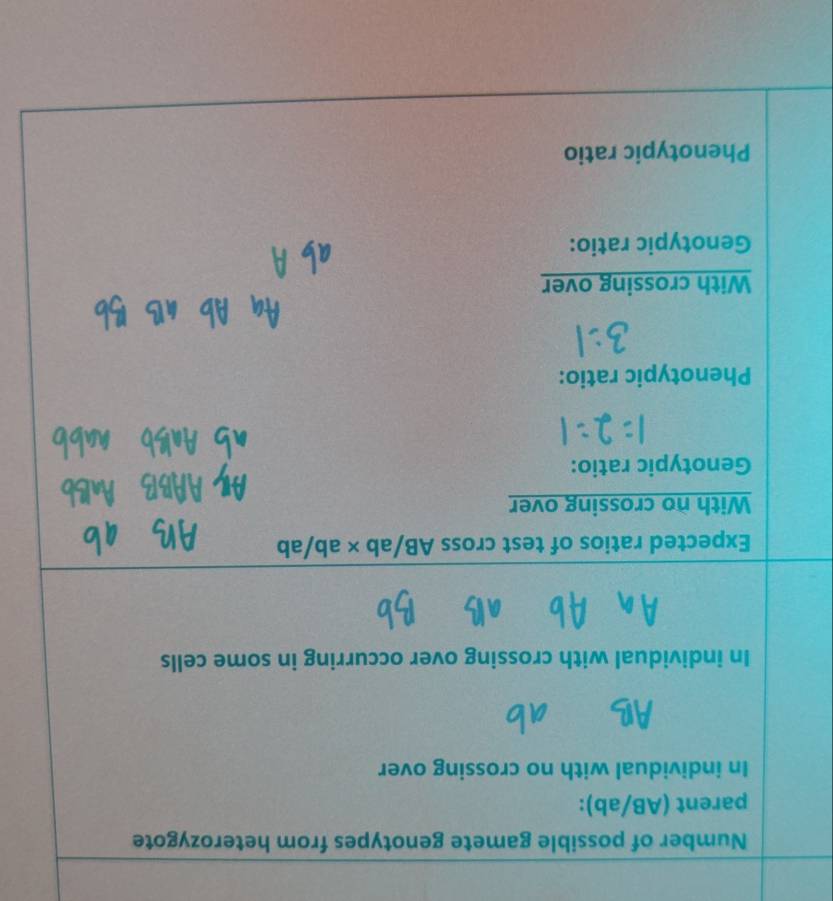 Number of possible gamete genotypes from heterozygote
parent (AB/ab):
In individual with no crossing over
AB ab
In individual with crossing over occurring in some cells
Aa Ab aB Bb
Expected ratios of test cross AB/ab × ab/ab
AB ab
With no crossing over
AABB AaBb
Genotypic ratio:
ab AaBb aabb
1:2:1
Phenotypic ratio:
3:1
Aa Ab aB Bb
With crossing over
ab A
Genotypic ratio:
Phenotypic ratio